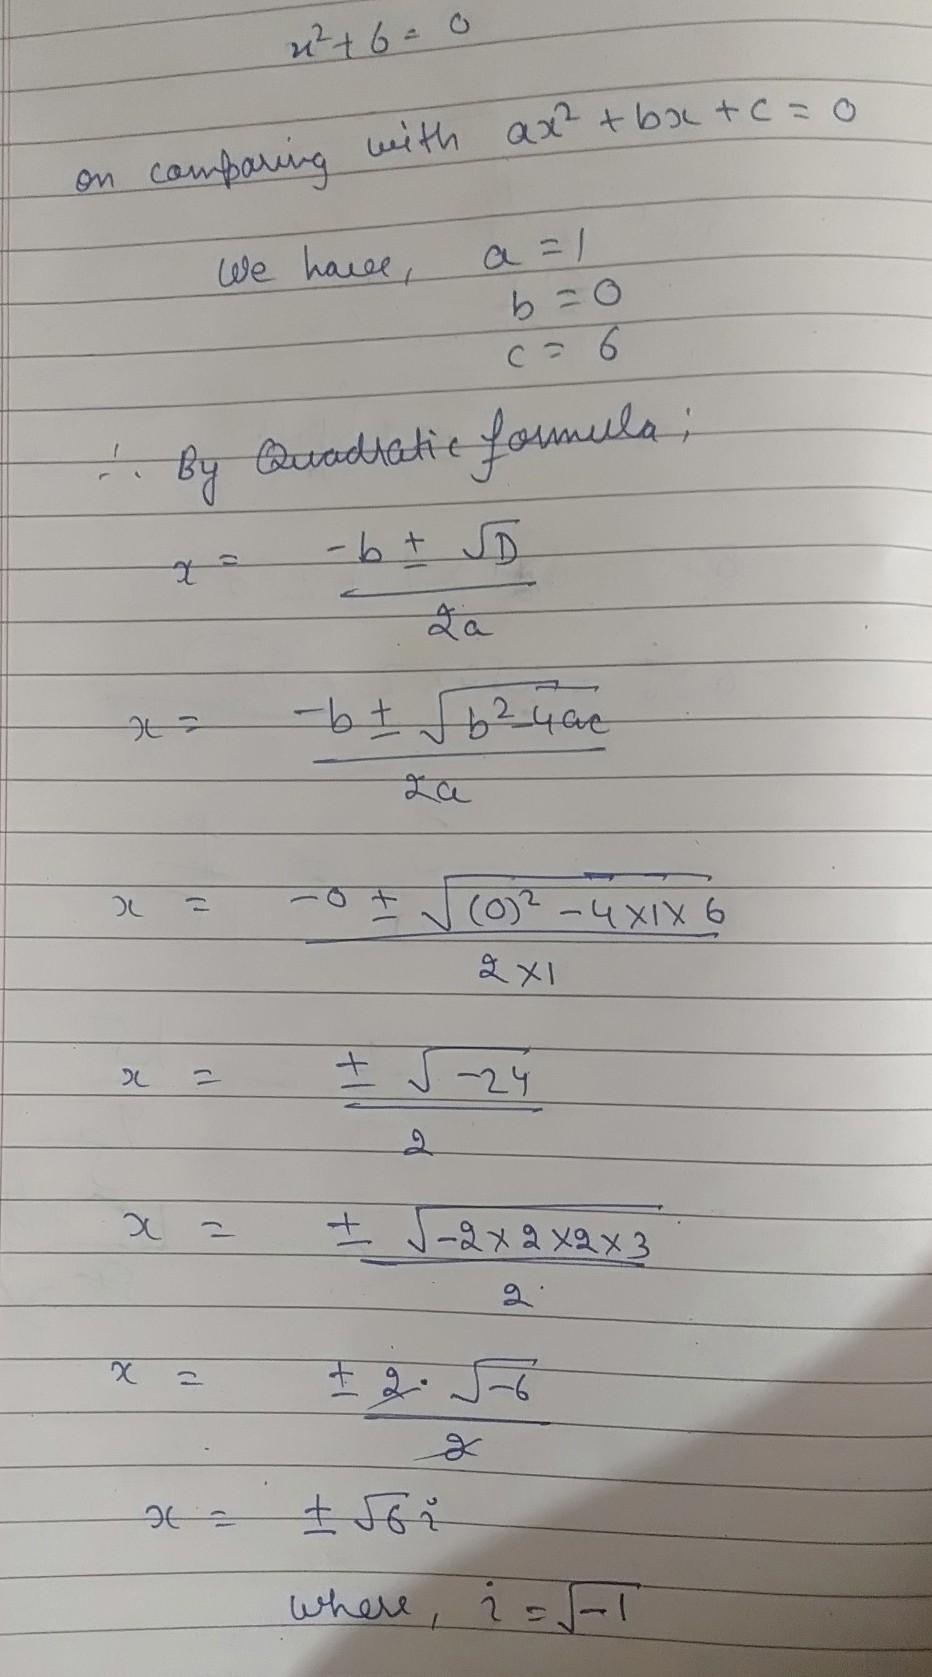 x² + 6 = 0
on comparing with ax² + bx + c = 0
We have, a = 1
b = 0
c = 6
∴ By Quadratic formula ;
x = -b ± √D
2a
x = -b ± √b² - 4ac
2a
x = -0 ± √(0)² - 4×1×6
2×1
x = ± √-24
2
x = ± √-2×2×2×3
2
x = ± 2·√-6
2
x = ± √6 i
where, i = √-1